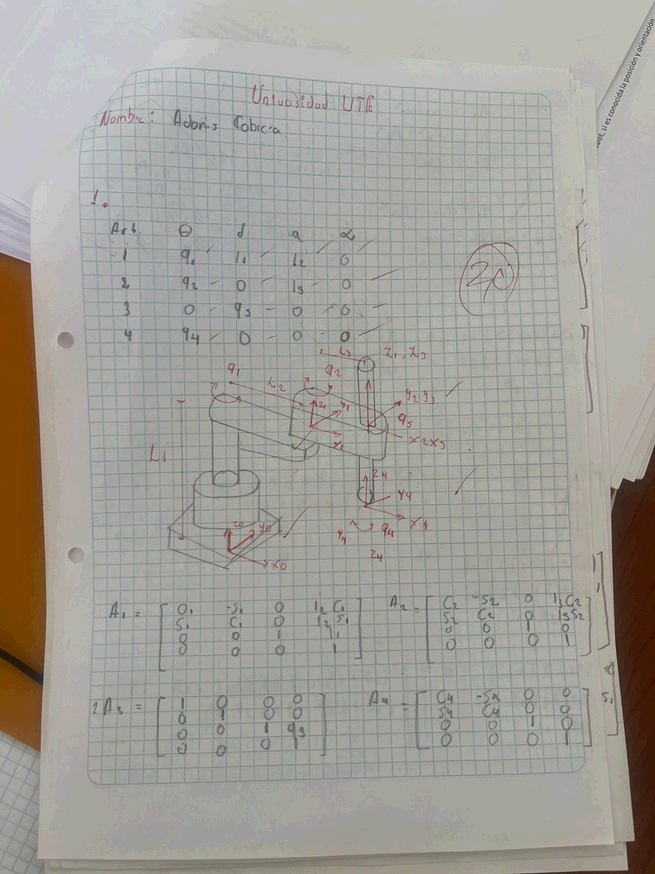 Universidad UTE
Nombre: Adonis Cobicia
1.
Art. θ d a α
1 q1 l1 l2 0
2 q2 0 l3 0
3 0 q3 0 0
4 q4 0 0 0
20
L3 z1, z3
q1 q2
L2 y2 y3
z1 y1 q3
x1 x2 x3
L1
z4
y4
z0 y0 q4 x4
x0 y4
z4
A1 =
C1 -S1 0 l2 C1
S1 C1 0 l2 S1
0 0 1 l1
0 0 0 1
A2 =
C2 -S2 0 l3 C2
S2 C2 0 l3 S2
0 0 1 0
0 0 0 1
2A3 =
1 0 0 0
0 1 0 0
0 0 1 q3
0 0 0 1
A4 =
C4 -S4 0 0
S4 C4 0 0
0 0 1 0
0 0 0 1
bot, si es conocida la posición y orientación